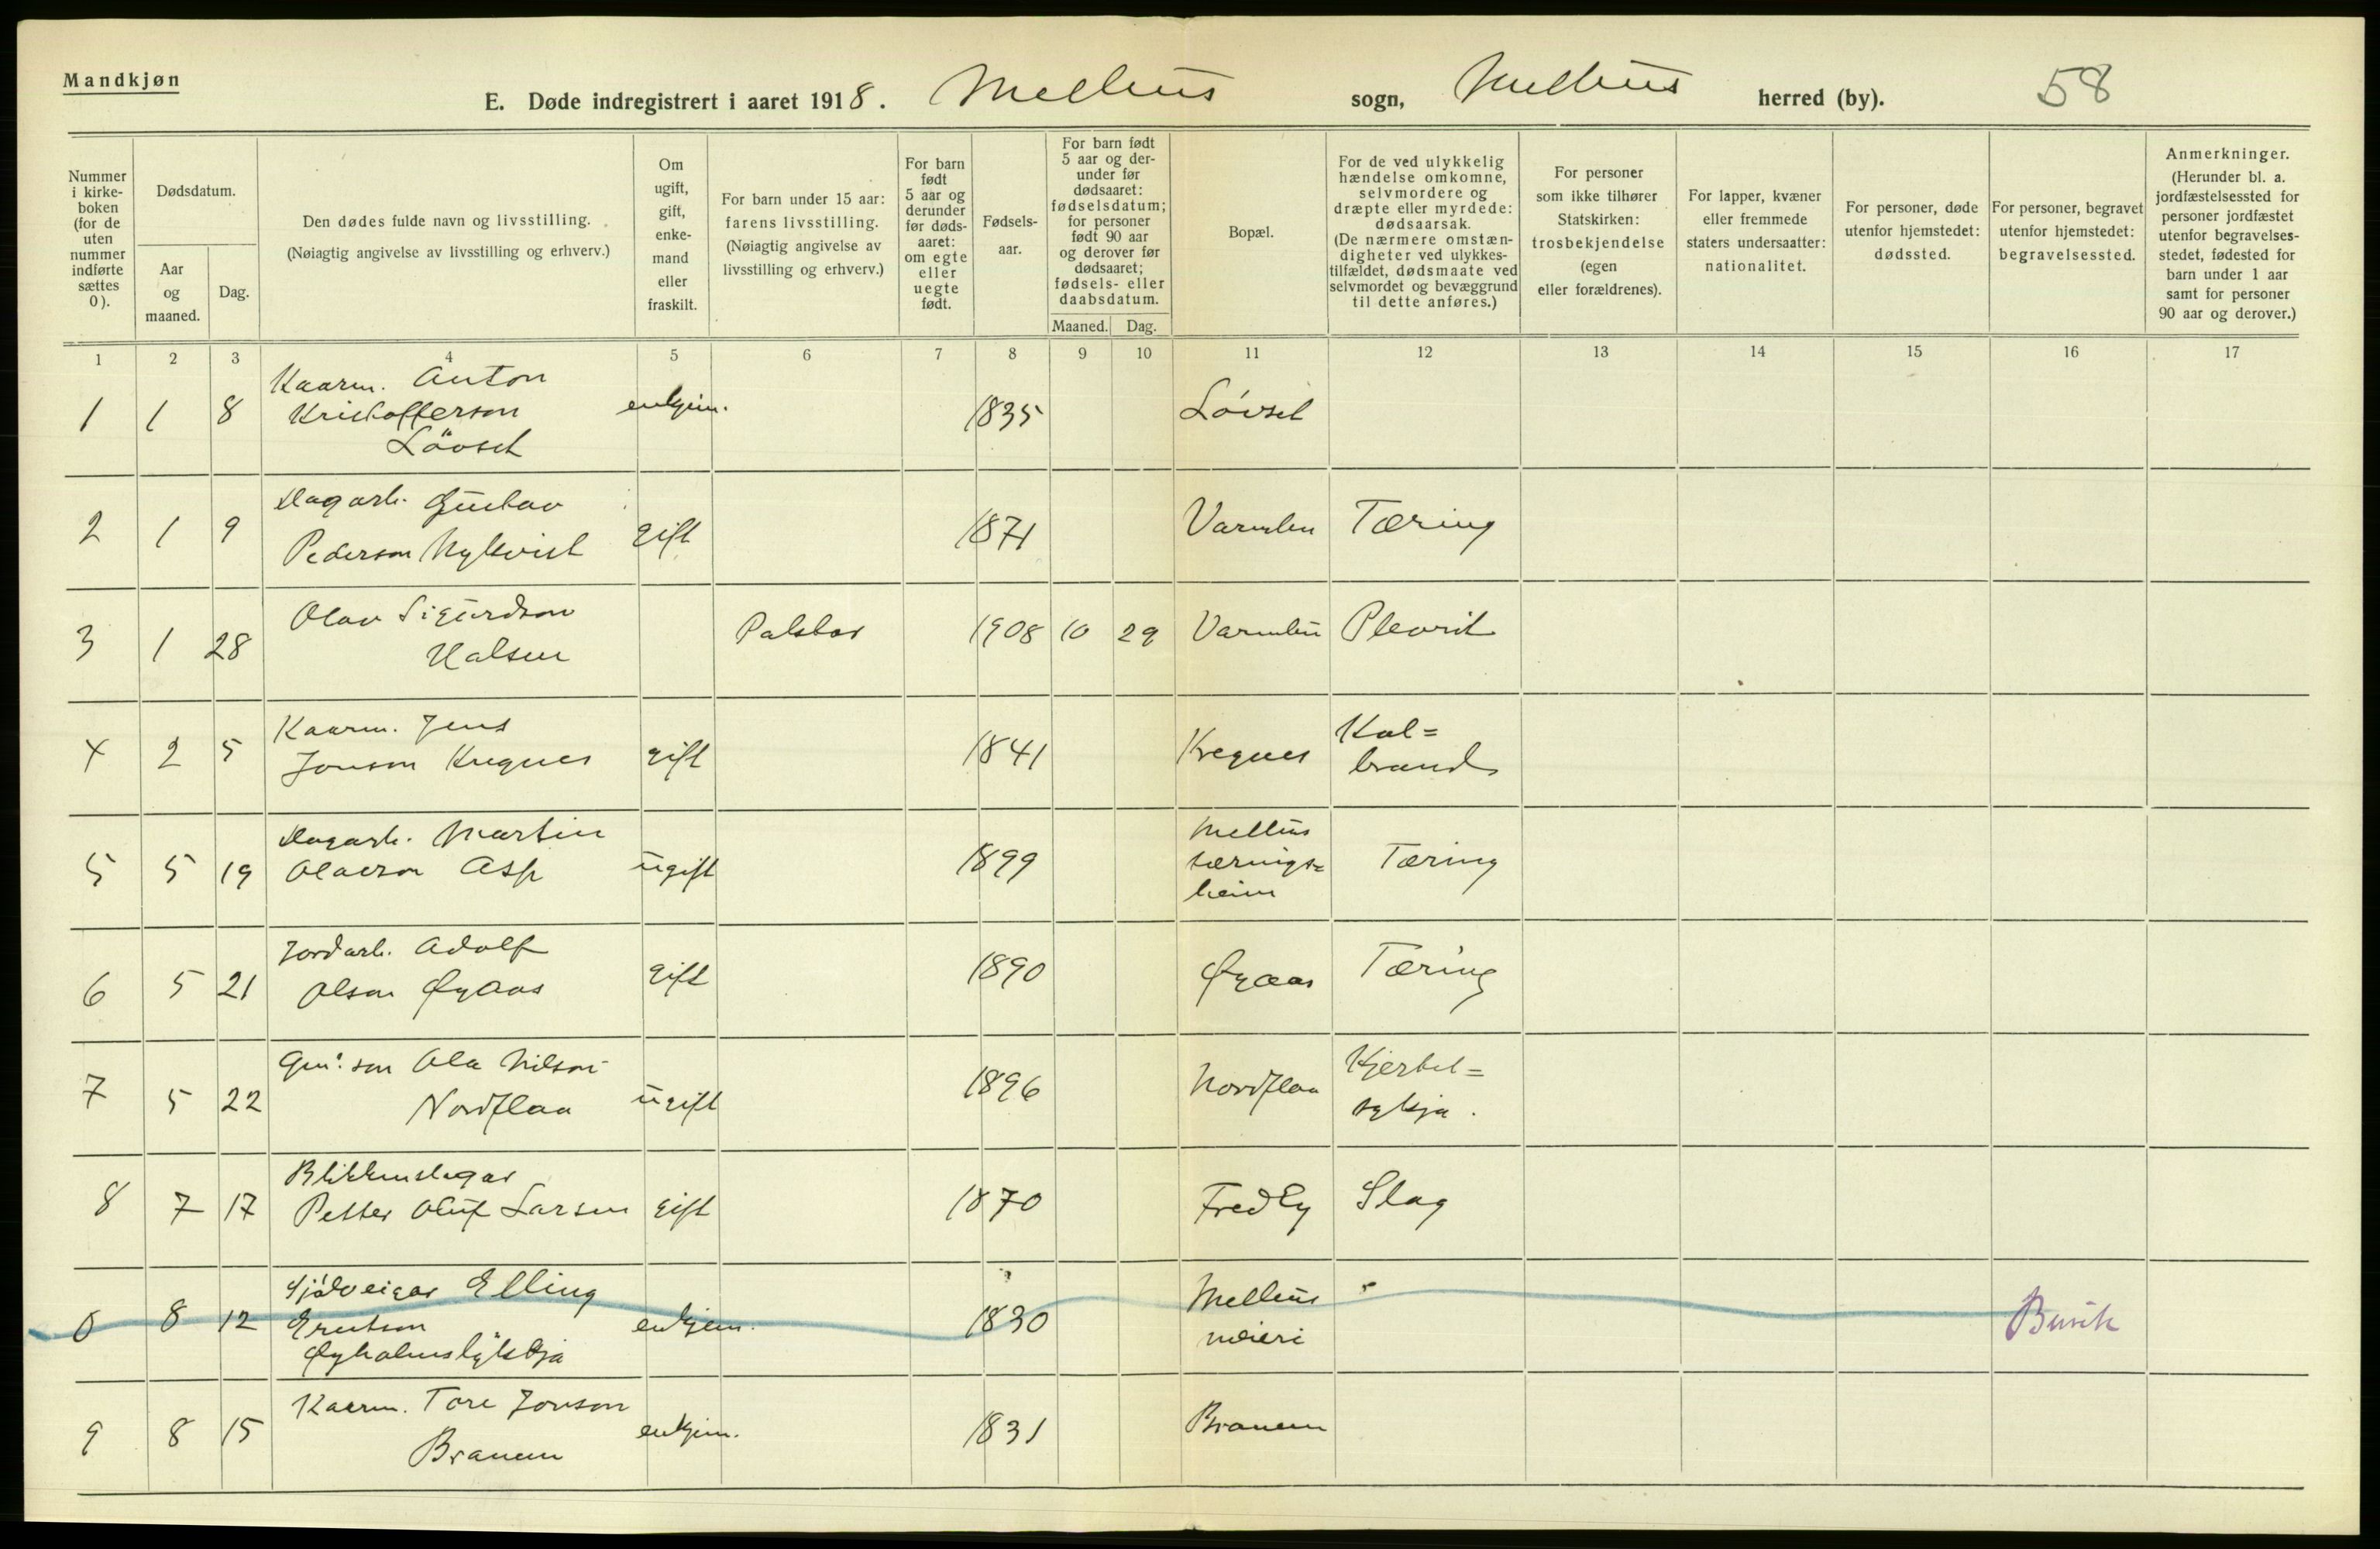 Mandkjøn
E. Døde indregistrert i aaret 1918. Melhus sogn, Melhus herred (by). 58
Nummer i kirke-boken (for de uten nummer indførte sættes 0).
Dødsdatum.
Aar og maaned.
Dag.
Den dødes fulde navn og livsstilling.
(Nøiagtig angivelse av livsstilling og erhverv.)
Om ugift, gift, enke-mand eller fraskilt.
For barn under 15 aar: farens livsstilling.
(Nøiagtig angivelse av livsstilling og erhverv.)
For barn født 5 aar og derunder før døds-aaret: om egte eller uegte født.
Fødsels-aar.
For barn født 5 aar og der-under før dødsaaret: fødselsdatum; for personer født 90 aar og derover før dødsaaret; fødsels- eller daabsdatum.
Maaned. Dag.
Bopæl.
For de ved ulykkelig hændelse omkomne, selvmordere og dræpte eller myrdede: dødsaarsak.
(De nærmere omstæn-digheter ved ulykkes-tilfældet, dødsmaate ved selvmordet og bevæggrund til dette anføres.)
For personer som ikke tilhører Statskirken: trosbekjendelse (egen eller forældrenes).
For lapper, kvæner eller fremmede staters undersaatter: nationalitet.
For personer, døde utenfor hjemstedet: dødssted.
For personer, begravet utenfor hjemstedet: begravelsessted.
Anmerkninger.
(Herunder bl. a. jordfæstelsessted for personer jordfæstet utenfor begravelses-stedet, fødested for barn under 1 aar samt for personer 90 aar og derover.)
1 2 3 4 5 6 7 8 9 10 11 12 13 14 15 16 17
Kaarm. Anton
1 1 8 Kristofferson enkjem. 1835 Løvset
Lövset
Dagarb. Gustav
2 1 9 Pederson Nykvist gift 1871 Varmbu Tæring
Olav Sigurdson
3 1 28 Halsen 1908 10 29 Varmbu Plevrit
Kaarm. Jens
4 2 5 Jonson Kregnes gift 1841 Kregnes Kol=
brand
Dagarb. Martin
5 5 19 Olavson Asp ugift 1899 Melhus
tærings=
heim
Tæring
Jordarb. Adolf
6 5 21 Olson Øyaas gift 1890 Øyaas Tæring
Gm: son Ola Nilson
7 5 22 Nordflaa ugift 1896 Nordflaa Hjertel=
sykja.
Blikkenslagar
8 7 17 Petter Oluf Larsen gift 1870 Fredly Slag
Sjølveigar Elling
0 8 12 Erutson enkjem. 1830 Melhus
meieri
Øyholmslykkja
Buvik
Kaarm. Tore Jonson
9 8 15 Branem enkjem. 1831 Branem